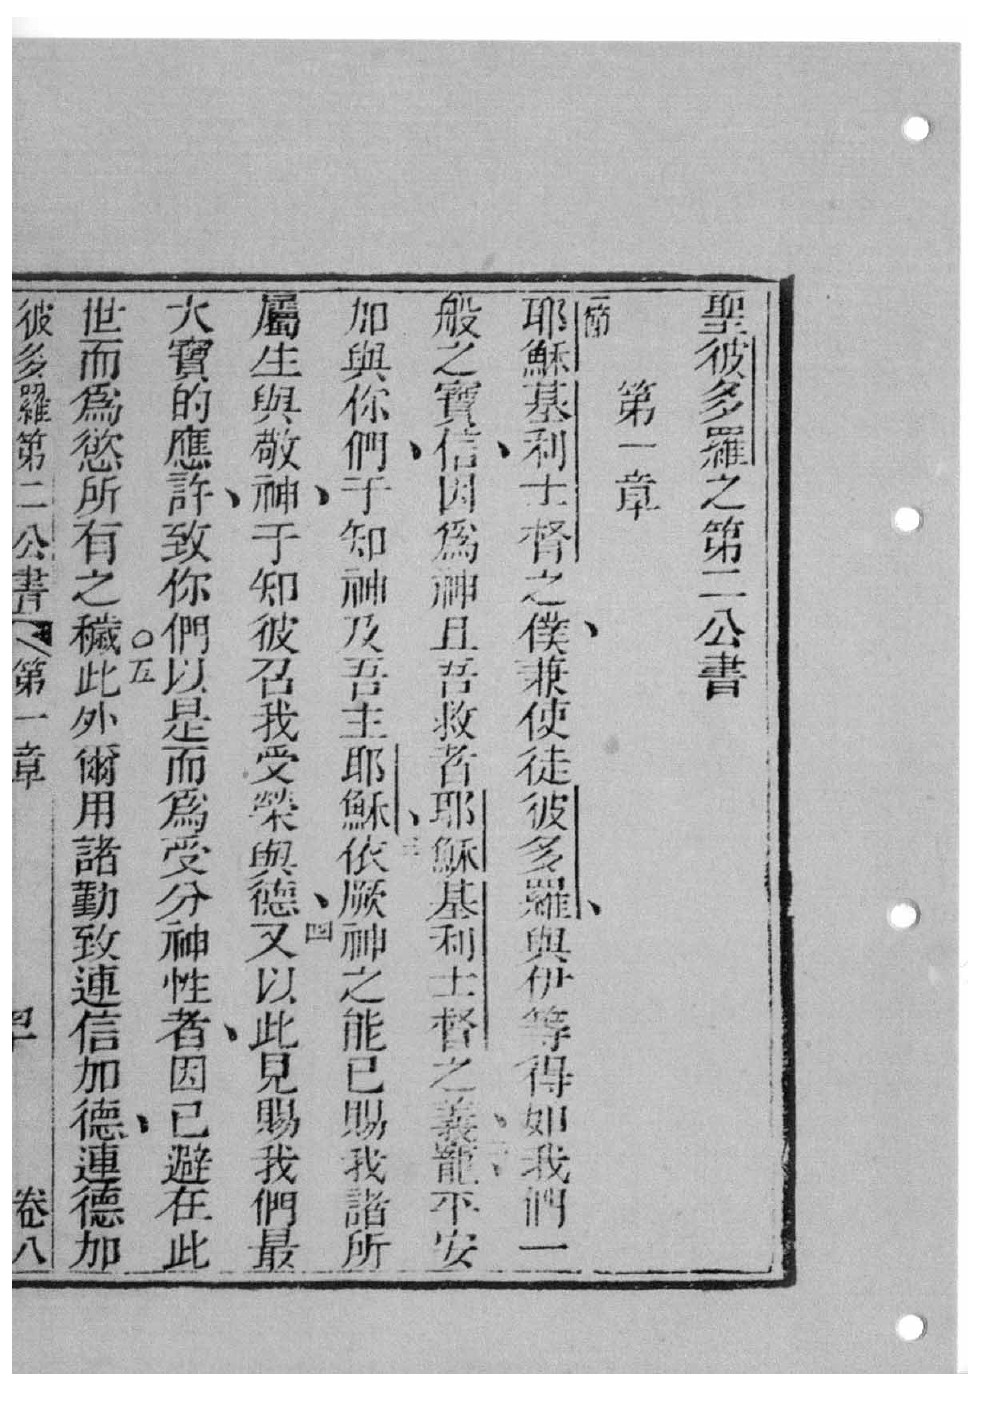 聖彼多羅之第二公書
第一章
一節
耶穌基利士督之僕、兼使徒彼多羅、與伊等得如我們一
般之寶信、因爲神且吾救者耶穌基利士督之義、寵平安
加與你們、于知神及吾主耶穌、三依厥神之能已賜我諸所
屬生與敬神、于知彼召我受榮與德、四又以此見賜我們最
大寶的應許、致你們以是而爲受分神性者、因已避在此
世而爲慾所有之穢○五此外爾用諸勤致連信加德、連德加
彼多羅第二公書 第一章 卷八